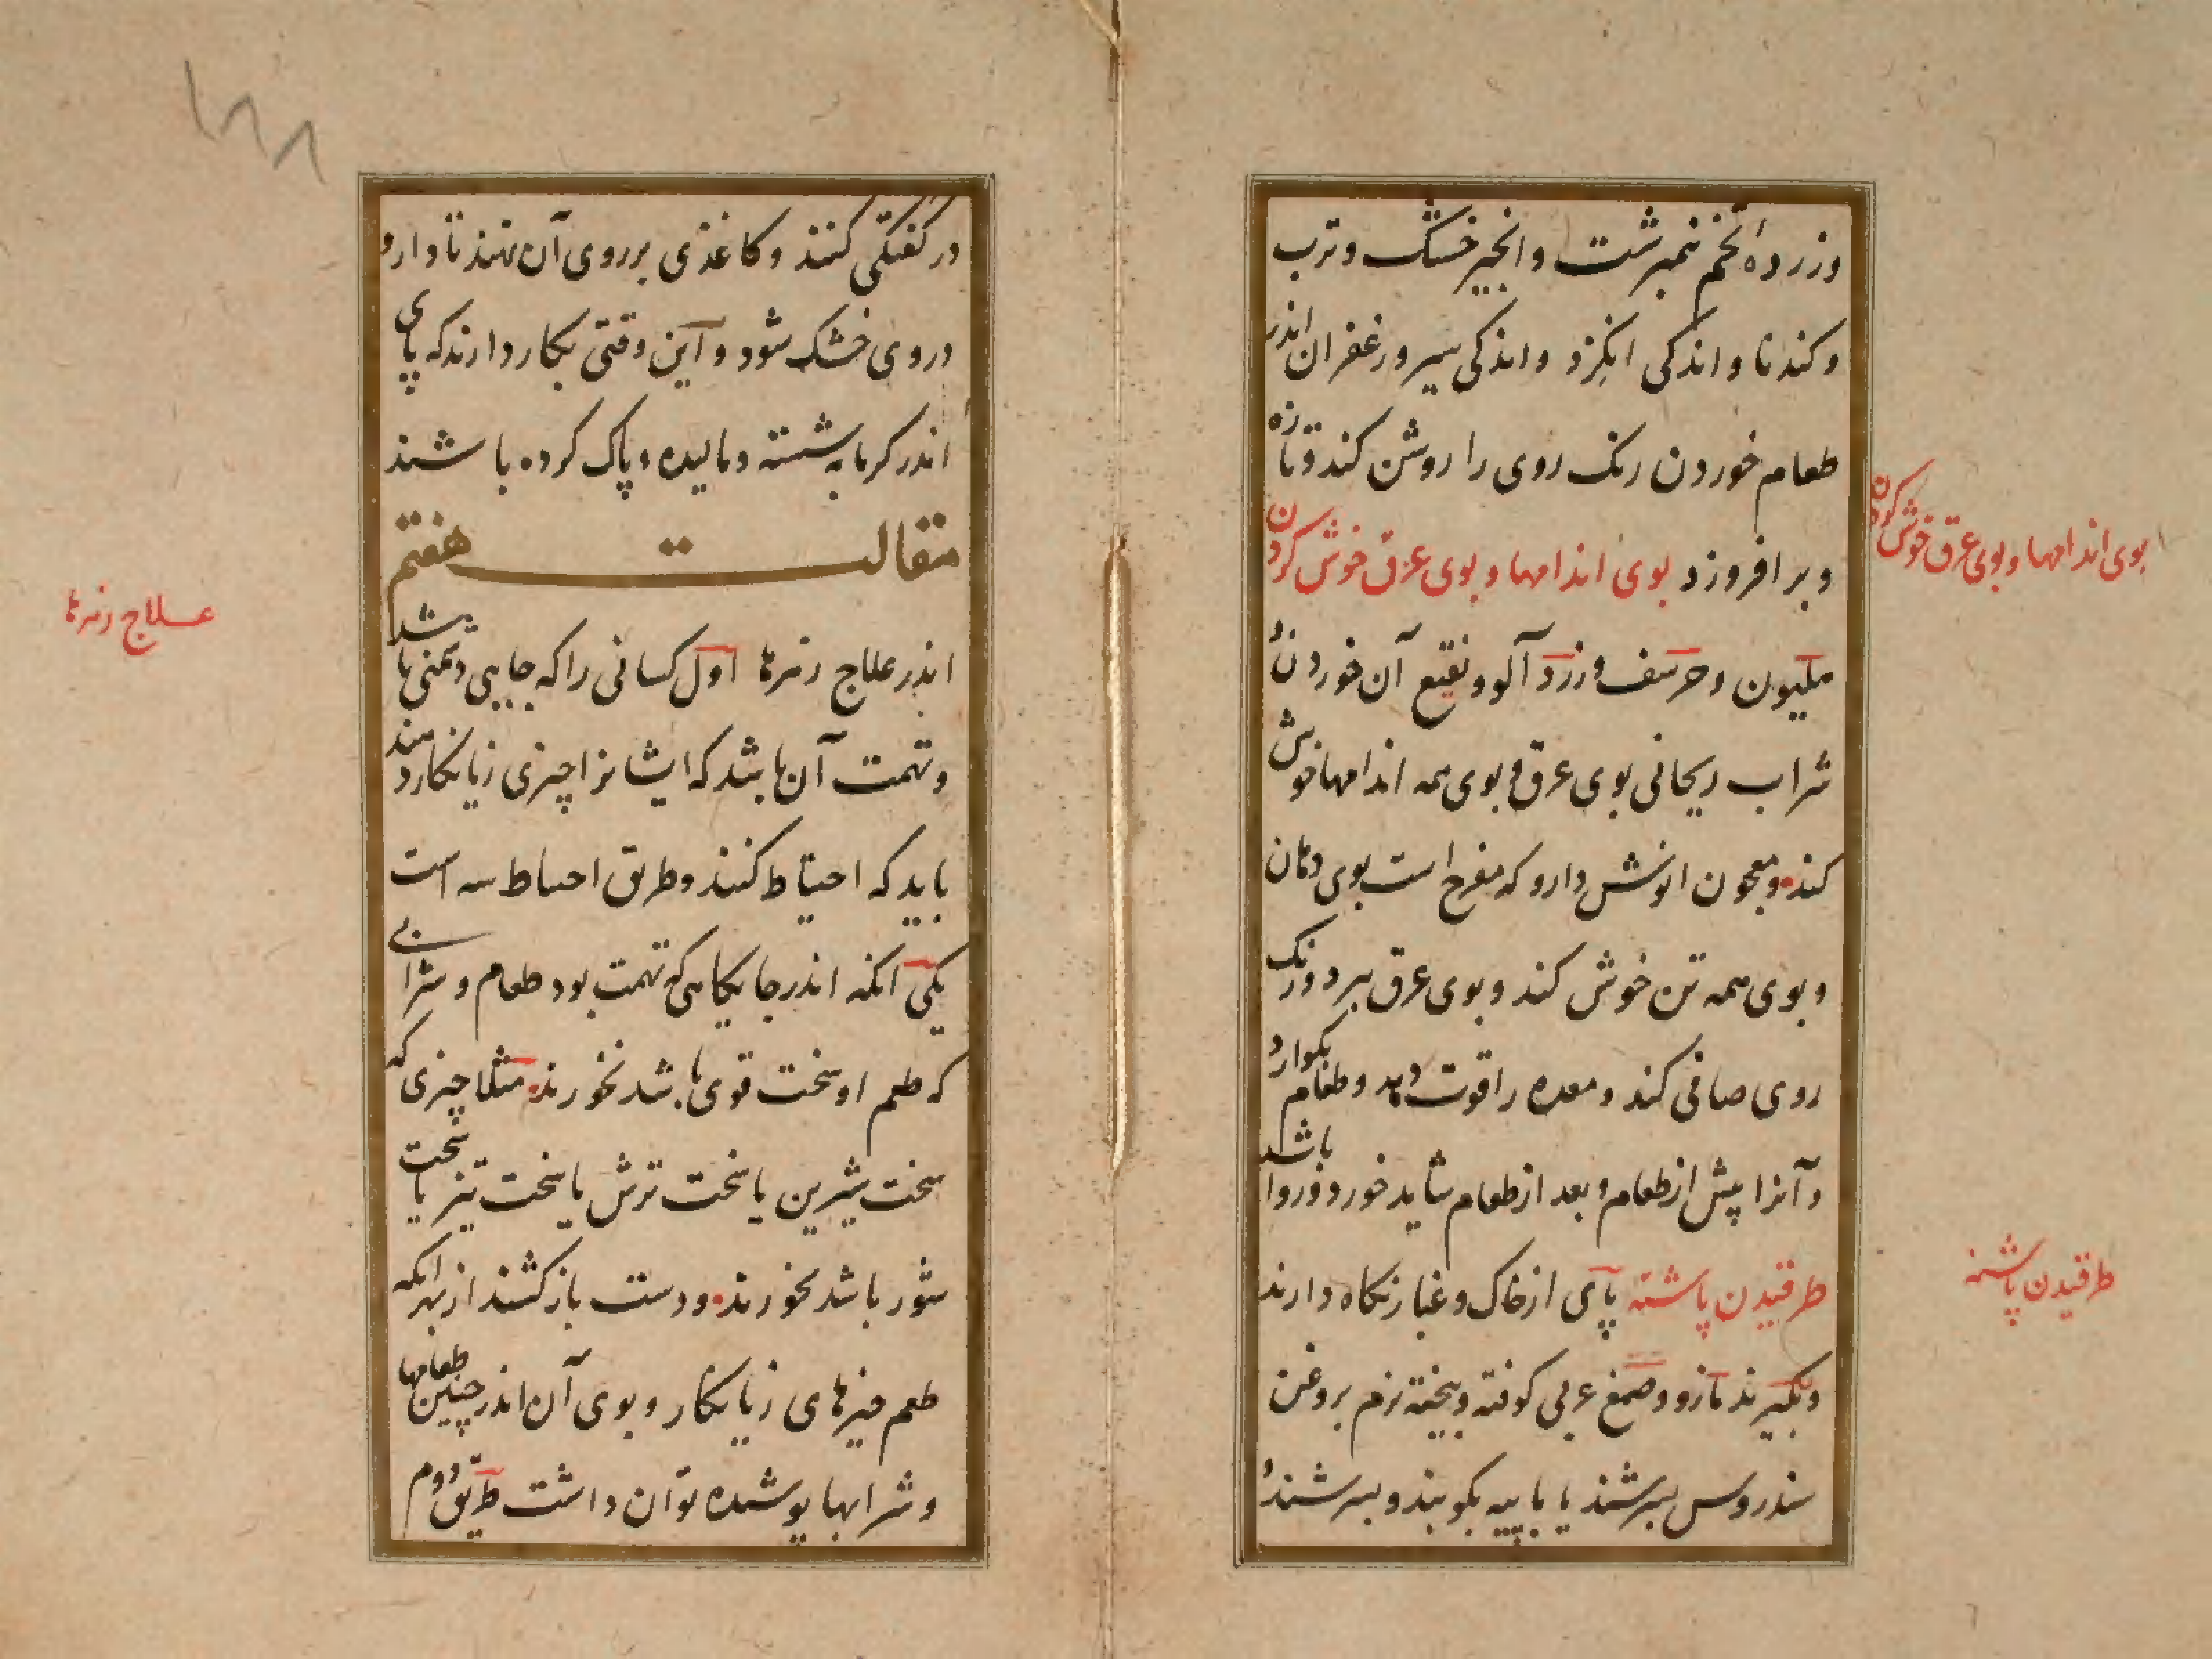 وزردهٔ تخم نیمبرشت وانجیر خشک وترب
وکندنا واندکی انکزد واندکی سیر وزعفران اندر
طعام خوردن رنک روی را روشن کند وتازه
وبر افروزد بوی اندامها وبوی عرق خوش کردن
بوی اندامها وبوی عرق خوش کردن
هلیون وحرشف وزرد آلو ونقیع آن خوردن و
شراب ریحانی بوی عرق وبوی همه اندامها خوش
کند ومعجون انوش دارو که مفرح است بوی دهان
وبوی همه تن خوش کند وبوی عرق ببرد ورنک
روی صافی کند ومعده را قوت دهد وطعام بکوارد
وآنرا پیش از طعام وبعد از طعام شاید خورد وروا باشد
طرقیدن پاشنه پای از خاک وغبار نکاه دارند
طرقیدن پاشنه
وبکیرند مازو وصمغ عربی کوفته وبیخته نرم بروغن
سندروس بسرشند یا با پیه بکوبند وبسرشند و
۱۸۸
در کفتکی کنند وکاغذی برروی آن نهند تا دارو
دروی خشک شود واین وقتی بکار دارند که پای
اندر کرمابه شسته ومالیده وپاک کرده باشند
مقالت هفتم
اندر علاج زهرها اول کسانی را که جایی دشمنی باشد
علاج زهرها
وتهمت آن باشد که ایشانرا چیزی زیانکار دهند
باید که احتیاط کنند وطریق احتیاط سه است
یکی انکه اندر جایکاهی که تهمت بود طعام وشرابی
که طعم او سخت قوی باشد نخورند مثلا چیزی که
سخت شیرین یا سخت ترش یا سخت تیز یا سخت
شور باشد نخورند ودست باز کشند از بهر انکه
طعم چیزهای زیانکار وبوی آن اندر چنین طعامها
وشرابها پوشیده توان داشت طریق دوم